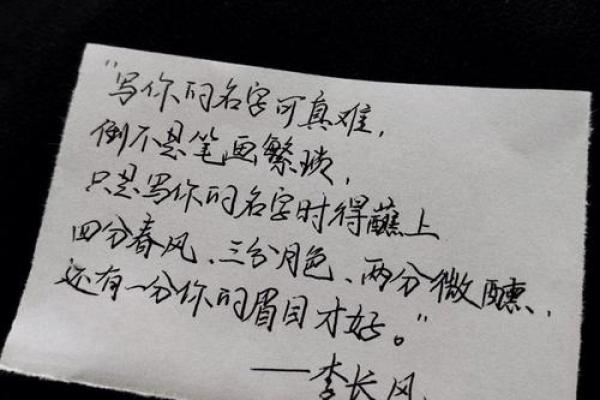 "写你的名字可真难,
倒不是笔画繁琐,
只是写你的名字时得蘸上
四分春风、三分月色、两分微醺,
还有一分你的眉目才好。"
——李长风.